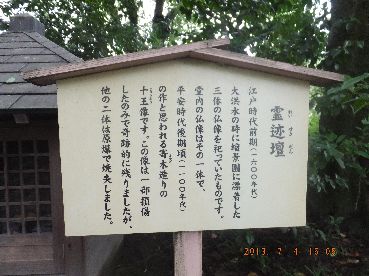 霊迹壇
れい せき だん
江戸時代前期(一六〇〇年代)
大洪水の時に縮景園に漂着した
三体の仏像を祀っていたものです。
堂内の仏像はその一体で、
平安時代後期頃(一一〇〇年代)
の作と思われる寄木造りの
十王像です。この像は一部損傷
したのみで奇跡的に残りましたが、
他の二体は原爆で焼失しました。
2013. 7. 4 15:05